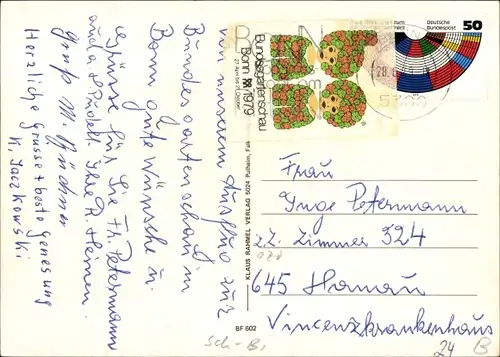 von unserem Ausflug zur
Bundesgartenschau in
Bonn gute Wünsche u.
Grüsse für Sie Fr. Petermann
Ihre R. Heinen.
Gruß M.
Herzliche Grüsse + beste genesung
K. Jaczkowski
Bundesgartenschau
Bonn 1979
27. April bis
KLAUS RAHMEL VERLAG 5024 Pulheim,
BF 602
Deutsche
Bundespost
50
Frau
Inge Petermann
z.Z. Zimmer 324
645 Hanau
Vincenzkrankenhaus
Sch-B,
24
B